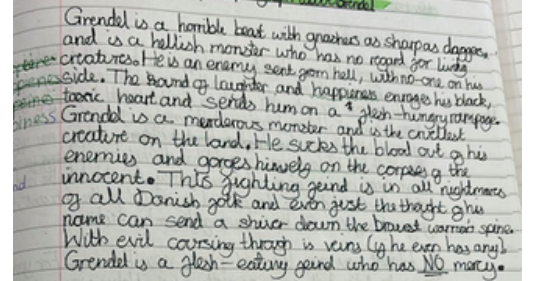 Grendel
Grendel is a horrible beast with gnashers as sharp as daggers,
and is a hellish monster who has no regard for living
creatures. He is an enemy sent from hell, with no-one on his
side. The sound of laughter and happiness enrages his black,
toxic heart and sends him on a flesh-hungry rampage.
Grendel is a merderous monster and is the cruellest
creature on the land. He sucks the blood out of his
enemies and gorges himself on the corpses of the
innocent. This fighting feind is in all nightmares
of all Danish folk and even just the thought of his
name can send a shiver down the bravest warriors spine.
With evil coursing through is veins (if he even has any).
Grendel is a flesh-eating feind who has NO mercy.